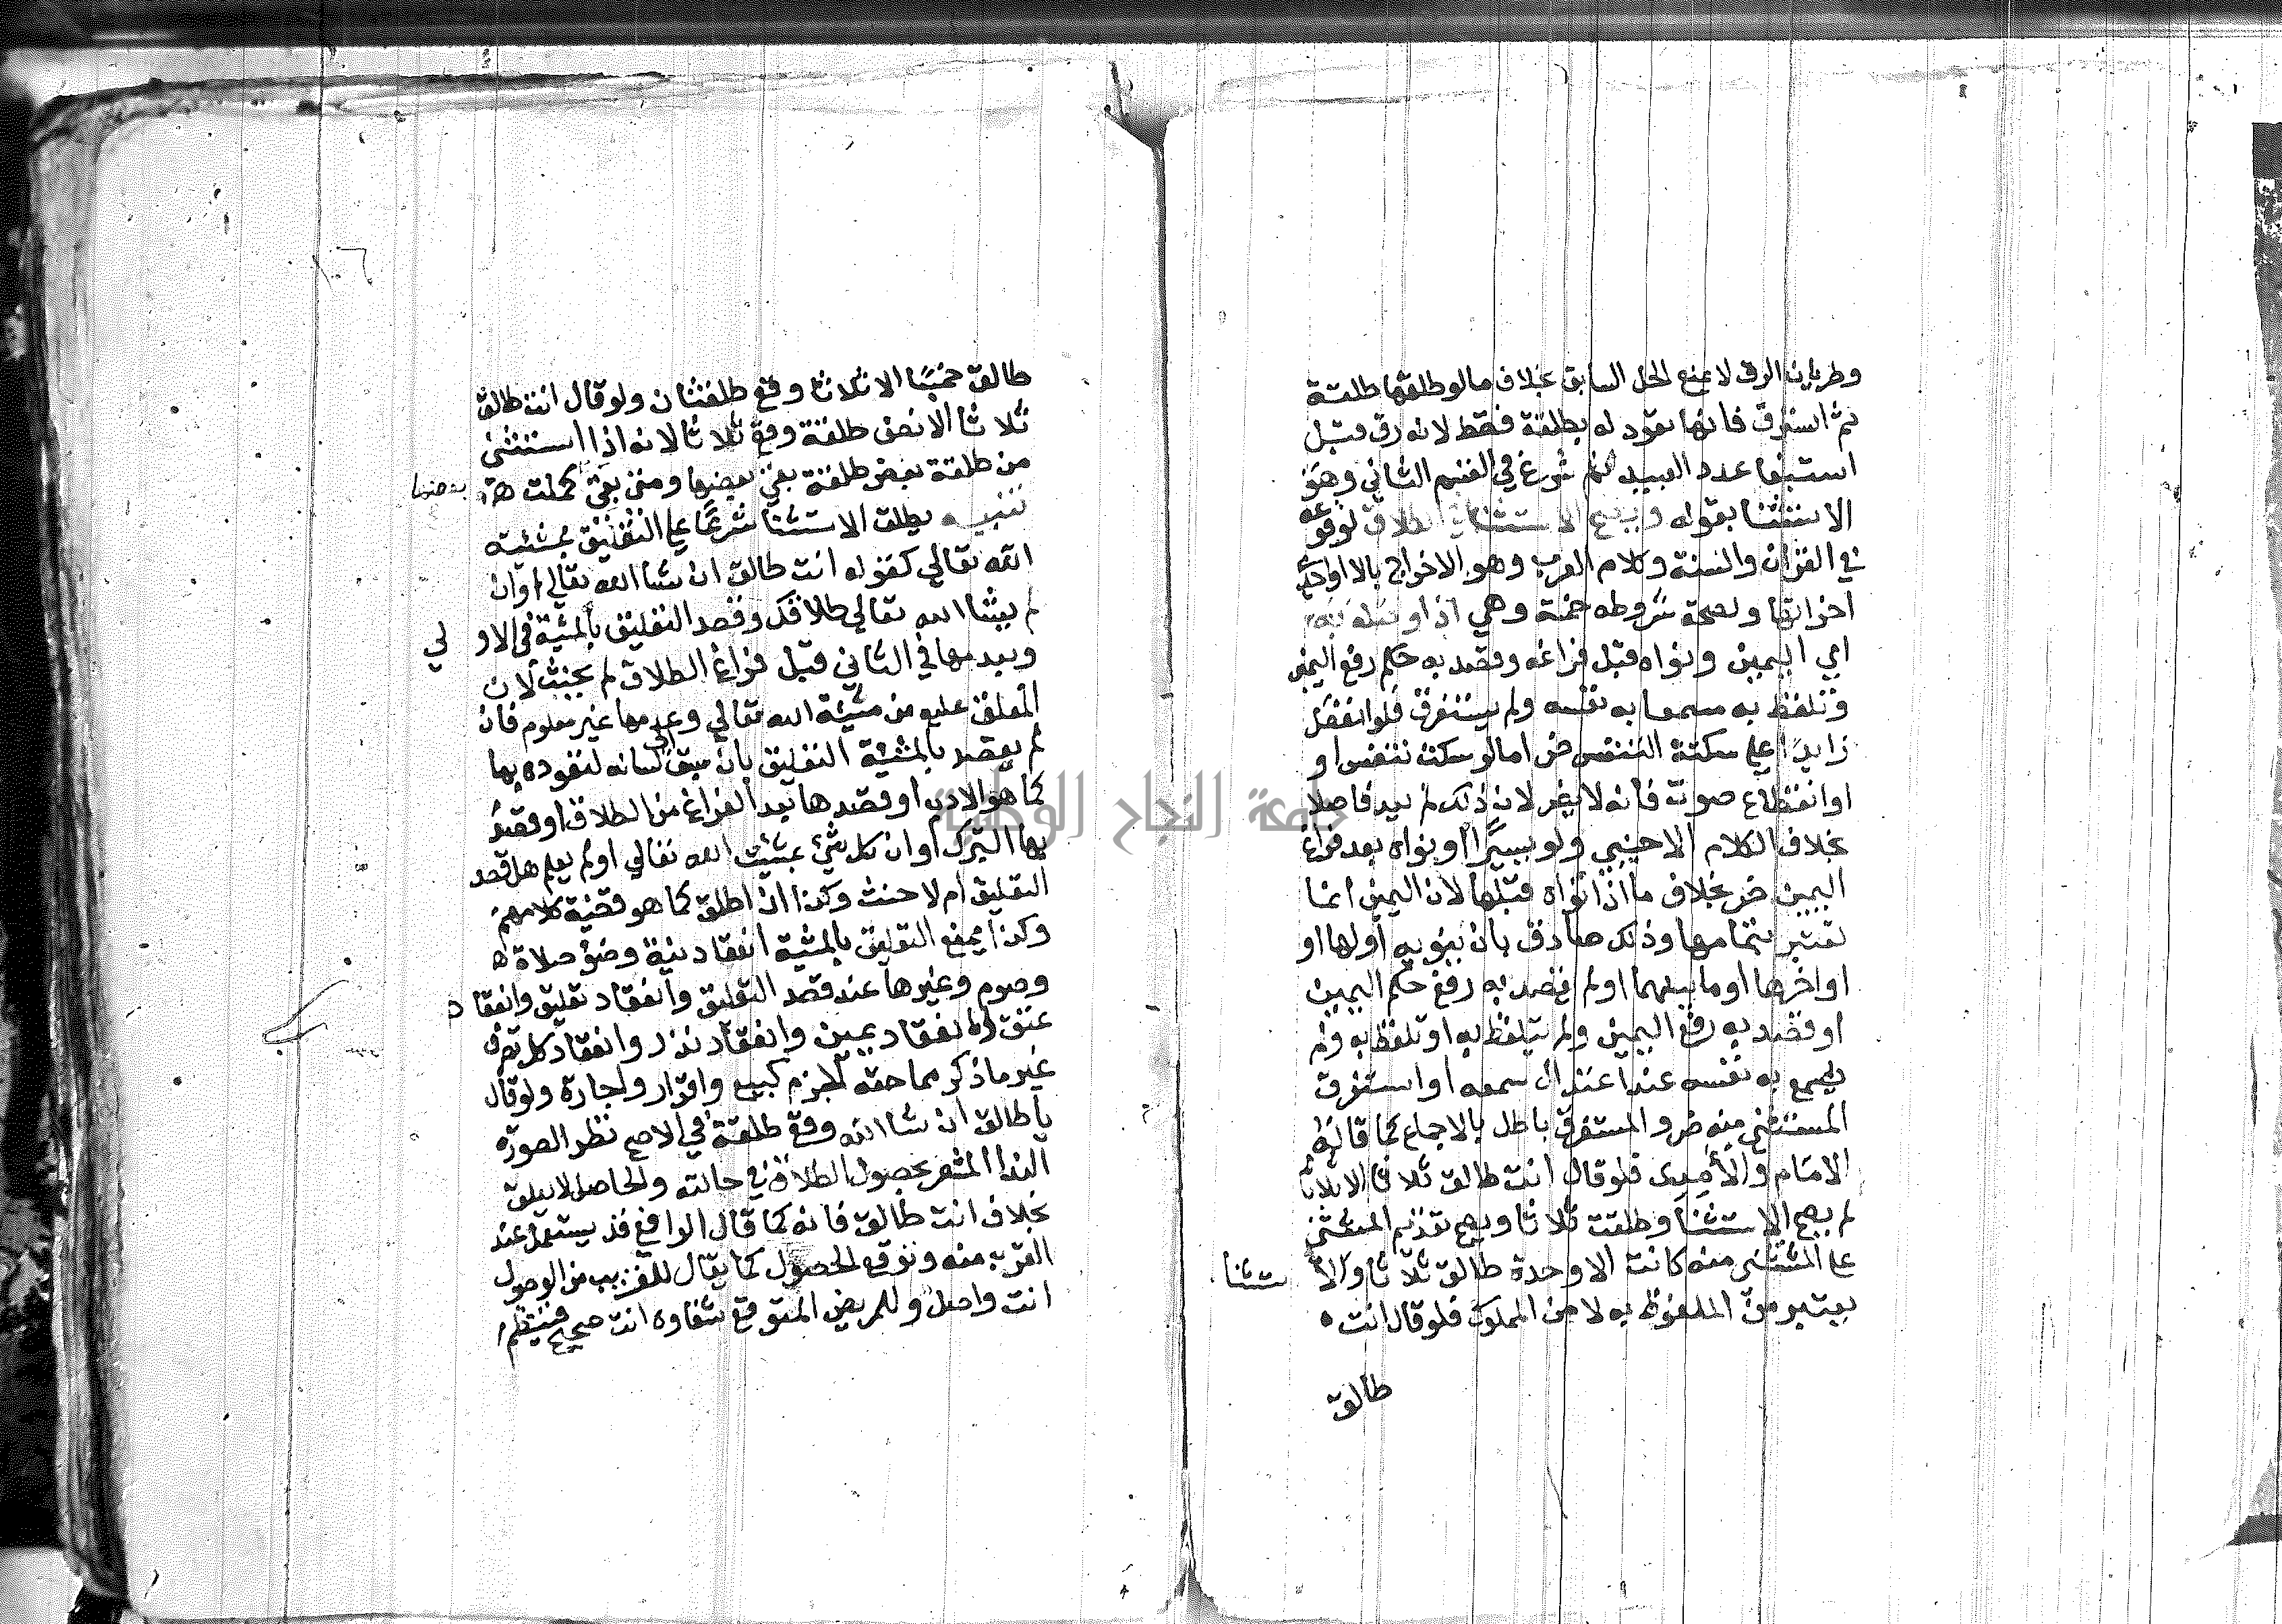 وطريان الرق لا يمنع الحل السابق بخلاف ما لو طلقها طلقة
ثم استرق فانها تعود له بطلقة فقط لانه رق قبل
استيفا عدد العبيد ثم شرع في القسم الثاني وهو
الاستثنا بقوله ويصح الاستثنا في الطلاق لوقوعه
في القران والسنة وكلام العرب وهو الاخراج بالا او احدى
اخواتها ولصحة شروطه خمسة وهي اذا وصله به
اي اليمين ونواه قبل فراغه وقصد به حكم رفع اليمين
وتلفظ به مسمعا به نفسه ولم يستغرق فلو انفصل
زايدا على سكتة التنفس ضر اما لو سكت لتنفس او
او انقطاع صوت فانه لا يضر لان ذلك لم يعد فاصلا
بخلاف الكلام الاجنبي ولو يسيرًا او نواه بعد فراغ
اليمين ضر بخلاف ما اذا نواه قبلها لان اليمين انما
تعتبر بتمامها وذلك صادق بان ينويه اولها او
او اخرها او ما بينهما او لم يقصد به رفع حكم اليمين
او قصد به رفع اليمين ولم يتلفظ به او تلفظ به ولم
يسمع به نفسه عند اعتدال سمعه او استغرق
المستثنى منه ضر والمستغرق باطل بالاجماع كما قاله
الامام والآمدى فلو قال انت طالق ثلاثا الا ثلاثا
لم يصح الاستثنا وطلقت ثلاثا ويصح تقديم المستثنى
على المستثنى منه كانت الا وحدة طالق ثلاثا والا ستثنا
يعتبر من الملفوظ به لا من المملوك فلو قال انت
طالق
طالق خمسًا الا ثلاثا وقع طلقتان ولو قال انت طالق
ثلاثا الا نصف طلقة وقع ثلاثا لانه اذا استثنى
من طلقة بعض طلقة بقي بعضها ومتى بقي كملت
تنبيه يطلق الاستثنا شرعًا على التعليق بمشئية
الله تعالي كقوله انت طالق ان شا الله تعالي او ان
لم يشا الله تعالي طلاقك وقصد التعليق بالمشية في الاو لي
وبعدمها في الثاني قبل فراغ الطلاق لم يحنث لان
المعلق عليه من مشية الله تعالي وعدمها غير معلوم فان
لم يقصد بالمشية التعليق بان سبق لسانه لتعوده بها
كما هو الادب او قصدها بعد الفراغ من الطلاق او قصد
بها التبرك او ان كل شيء بمشيت الله تعالي او لم يعلم هل قصد
التعليق ام لا حنث وكذا ان اطلق كما هو قضية كلامهم
وكذا يمنع التعليق بالمشية انعقاد نية وضؤ وصلاة
وصوم وغيرها عند قصد التعليق وانعقاد تعليق وانعقاد
عتق وانعقاد يمين وانعقاد نذر وانعقاد كل تصرف
غير ما ذكر مما حقه الجزم كبيع واقرار واجارة ولو قال
يا طالق ان شا الله وقع طلقة في الاصح نظر الصورة
الندا المشعر بحصول الطلاق في حالته والحاصل لا يعلق
بخلاف انت طالق فانه كما قال الرافعي قد يستعمل عند
القرب منه وتوقع الحصول كما يقال للقريب من الوصول
انت واصل وللمريض المتوقع شفاوه انت صحيح فينتظم
جامعة النجاح الوطنية